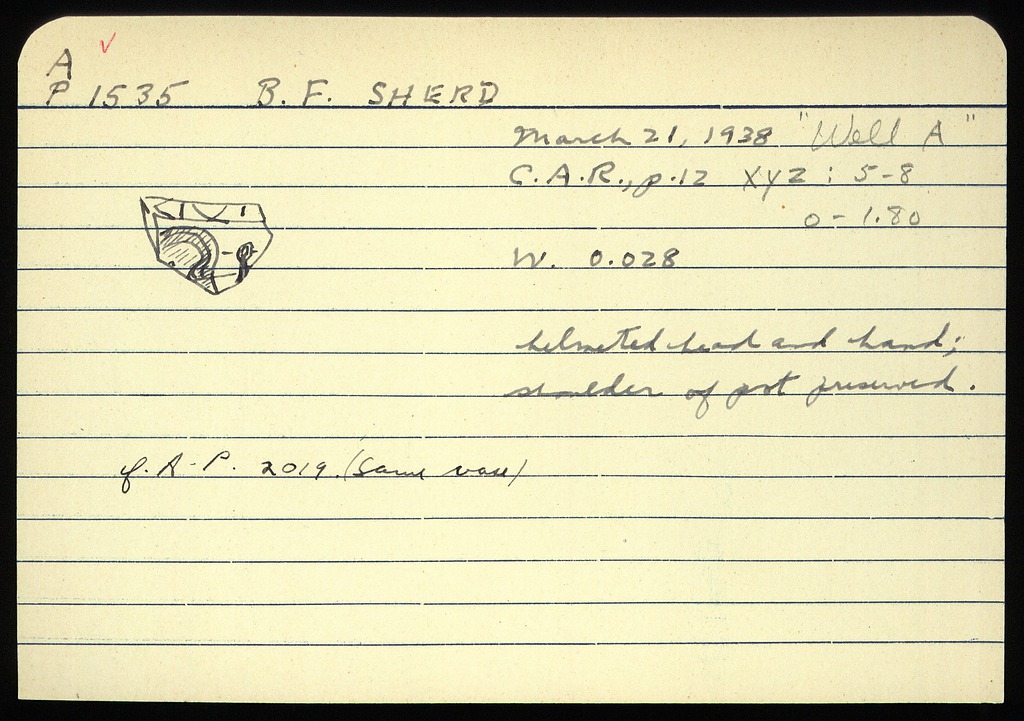 A ✓
P 1535 B. F. SHERD
March 21, 1938 "Well A"
C.A.R., p.12 XYZ : 5-8
0-1.80
W. 0.028
helmeted head and hand;
shoulder of pot preserved.
cf. A-P. 2019. (same vase)